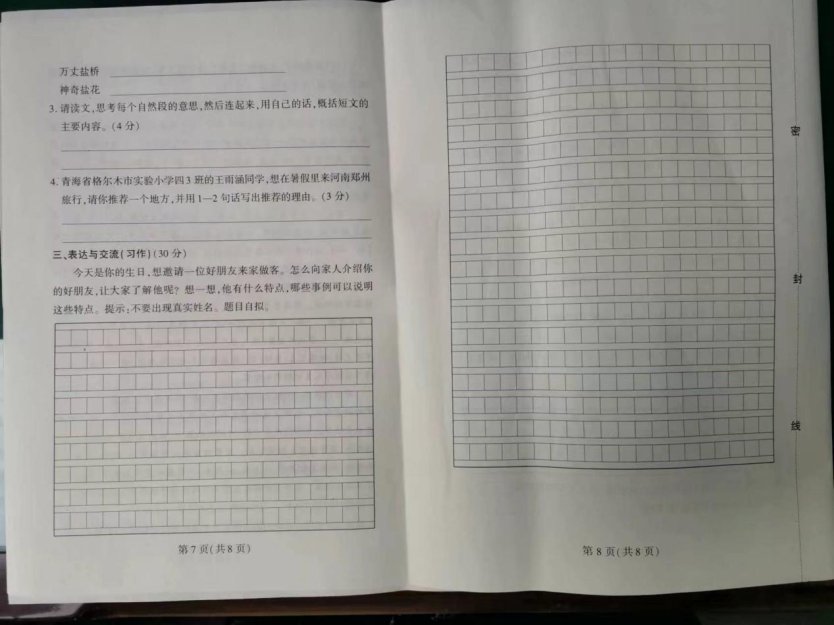 万丈盐桥
神奇盐花
3. 请读文,思考每个自然段的意思,然后连起来,用自己的话,概括短文的
主要内容。(4 分)
4. 青海省格尔木市实验小学四3 班的王雨涵同学,想在暑假里来河南郑州
旅行,请你推荐一个地方,并用1—2 句话写出推荐的理由。(3 分)
三、表达与交流(习作)(30 分)
今天是你的生日,想邀请一位好朋友来家做客。怎么向家人介绍你
的好朋友,让大家了解他呢? 想一想,他有什么特点,哪些事例可以说明
这些特点。提示:不要出现真实姓名。题目自拟。
第 7 页(共 8 页)
密
封
线
第 8 页(共 8 页)